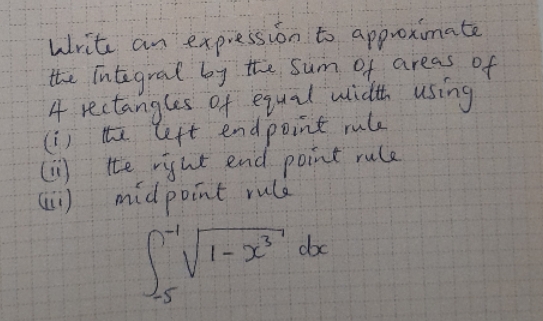 Write an expression to approximate
the Integral by the sum of areas of
4 rectangles of equal width using
(i) the left endpoint rule
(ii) the right end point rule
(iii) midpoint rule
∫_{-5}^{-1} √(1 - x³) dx